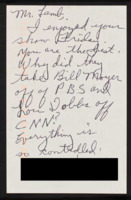 Mr. Lamb.
I enjoyed your
show Friday
you are the best.
Why did they
take Bill Moyer
off of PBS and
Lou Dobbs off
CNN?
everything is
so controlled.